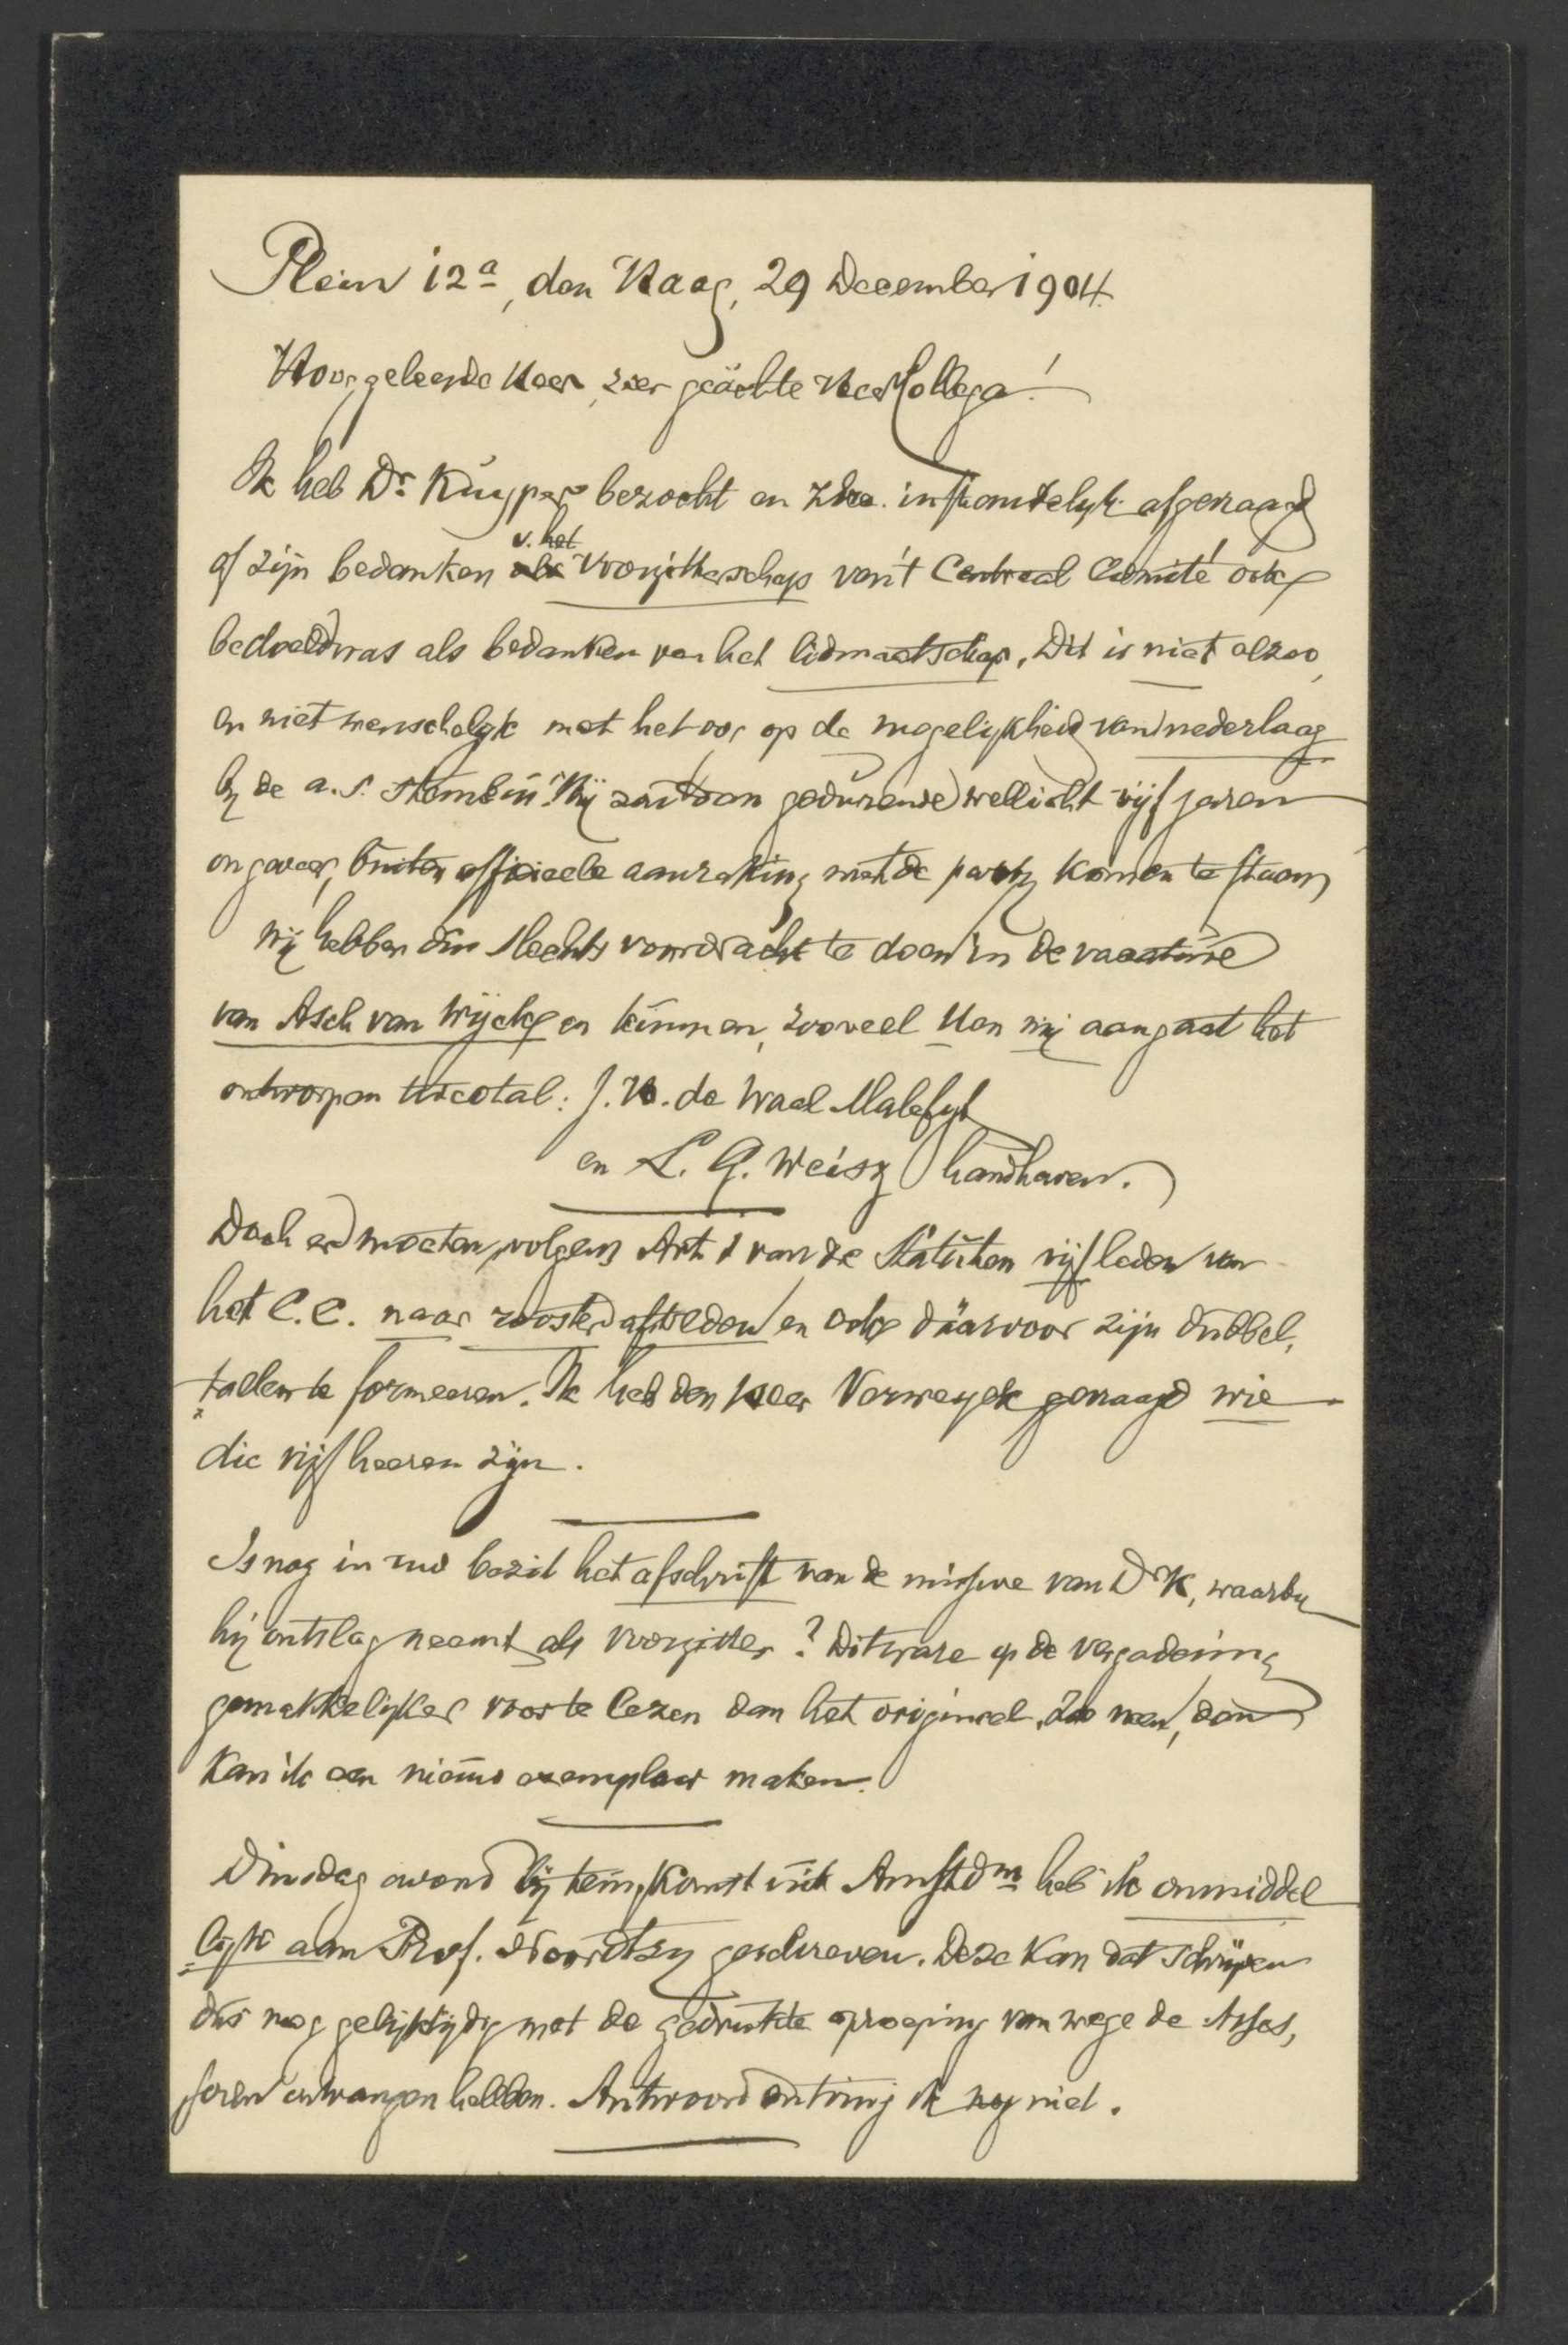 Plein 12a, den Haag, 29 December 1904.
Hooggeleerde Heer, zeer geächte Heer Collega!
Ik heb Dr. Kuyper bezocht en ZExc. in afgevraagd
of zijn bedanken v. het voorzitterschap van't Centraal Comité ook
bedoeld was als bedanken van het lidmaatschap. Dit is niet alzoo,
en niet wenschelijk met het oog op de mogelijkheid van nederlaag
bij de a.s. stembus. Hij zou dan gedurende wellicht vijf jaren
ongeveer, buiten officieele aanraking met de partij komen te staan,
Wij hebben dus slechts voordracht te doen in de vacature
van Asch van Wijck en kunnen, zooveel U en mij aangaat het
ontworpen tweetal: J. H. de Waal Malefijt
en L. G. Weisz handhaven.
Doch er moeten, volgens Art van de Statuten vijf leden van
het C.C. naar rooster aftreden en ook däarvoor zijn dubbel,
tallen te formeeren. Ik heb den heer Verweyck gevraagd wie
die vijf heeren zijn.
Is nog in uw bezit het afschrift van de missive van Dr K, waarbij
hij ontslag neemt als voorzitter? Dit ware op de vergadering
gemakkelijker voor te lezen dan het origineel. Zoo neen, dan
kan ik een nieuw exemplaar maken.
Dinsdag avond bij terugkomst uit Amstdm heb ik onmiddel
lijk aan Prof. Noordtzij geschreven. Deze kan dat schrijven
dus nog gelijktijdig met de gedrukte oproeping van wege de Asses,
soren ontvangen hebben. Antwoord ontving ik nog niet.